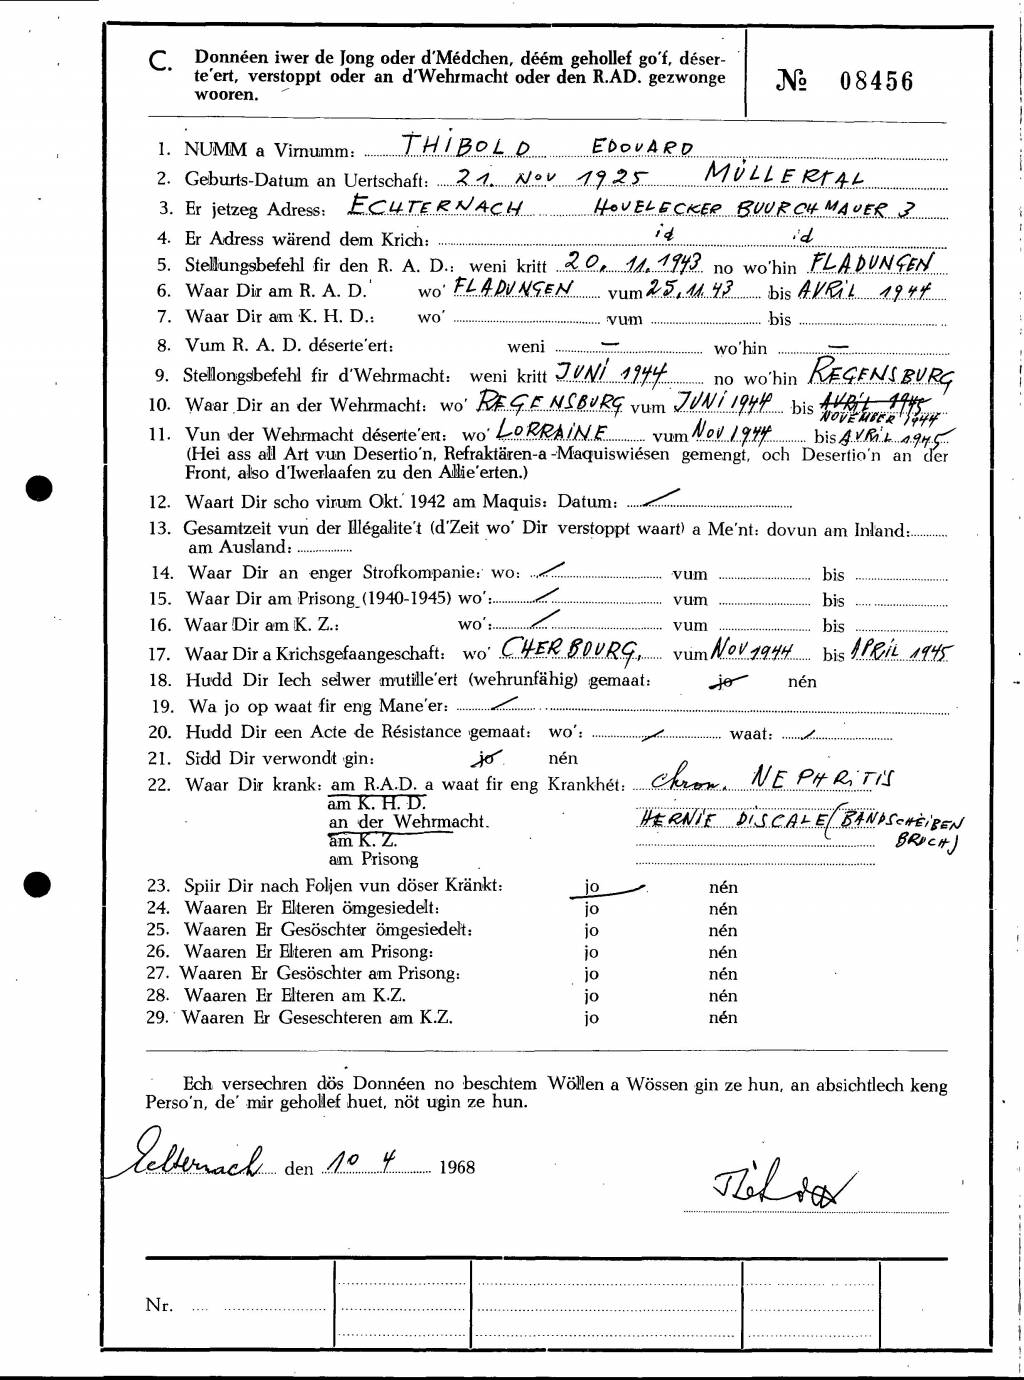 C. Donnéen iwer de Jong oder d'Médchen, déém gehollef go'f, déser-
te'ert, verstoppt oder an d'Wehrmacht oder den R.AD. gezwonge
wooren.
№ 08456
1. NUMM a Virnumm: THIBOLD EDOUARD
2. Geburts-Datum an Uertschaft: 21. NOV 1925 MÜLLERTAL
3. Er jetzeg Adress: ECHTERNACH HOVELECKER BUURCHMAUER 3
4. Er Adress wärend dem Krich: id id
5. Stellungsbefehl fir den R. A. D.: weni kritt 20. 11. 1943 no wo'hin FLADUNGEN
6. Waar Dir am R. A. D. wo' FLADUNGEN vum 25. 11. 43 bis AVRIL 1944
7. Waar Dir am K. H. D.: wo' vum bis
8. Vum R. A. D. déserte'ert: weni — wo'hin —
9. Stellongsbefehl fir d'Wehrmacht: weni kritt JUNI 1944 no wo'hin REGENSBURG
10. Waar Dir an der Wehrmacht: wo' REGENSBURG vum JUNI 1944 bis AVRIL 1945
NOVEMBER 1944
11. Vun der Wehrmacht déserte'ert: wo' LORRAINE vum NOV 1944 bis AVRIL 1945
(Hei ass all Art vun Desertio'n, Refraktären-a -Maquiswiésen gemengt, och Desertio'n an der
Front, also d'Iwerlaafen zu den Allie'erten.)
12. Waart Dir scho virum Okt. 1942 am Maquis: Datum: /
13. Gesamtzeit vun der Illégalite't (d'Zeit wo' Dir verstoppt waart) a Me'nt: dovun am Inland:
am Ausland:
14. Waar Dir an enger Strofkompanie: wo: / vum bis
15. Waar Dir am Prisong (1940-1945) wo': / vum bis
16. Waar Dir am K. Z.: wo': / vum bis
17. Waar Dir a Krichsgefaangeschaft: wo' CHERBOURG, vum NOV 1944 bis APRIL 1945
18. Hudd Dir Iech selwer mutille'ert (wehrunfähig) gemaat: jo nén
19. Wa jo op waat fir eng Mane'er: /
20. Hudd Dir een Acte de Résistance gemaat: wo': / waat: /
21. Sidd Dir verwondt gin: jo nén
22. Waar Dir krank: am R.A.D. a waat fir eng Krankhét: Chron. NEPHRITIS
am K. H. D.
an der Wehrmacht. HERNIE DISCALE (BANDSCHEIBEN
am K. Z. BRUCH)
am Prisong
23. Spiir Dir nach Foljen vun döser Kränkt: jo nén
24. Waaren Er Elteren ömgesiedelt: jo nén
25. Waaren Er Gesöschter ömgesiedelt: jo nén
26. Waaren Er Elteren am Prisong: jo nén
27. Waaren Er Gesöschter am Prisong: jo nén
28. Waaren Er Elteren am K.Z. jo nén
29. Waaren Er Geseschteren am K.Z. jo nén
Ech versechren dös Donnéen no beschtem Wöllen a Wössen gin ze hun, an absichtlech keng
Perso'n, de' mir gehollef huet, nöt ugin ze hun.
Echternach den 10 4 1968
Nr.